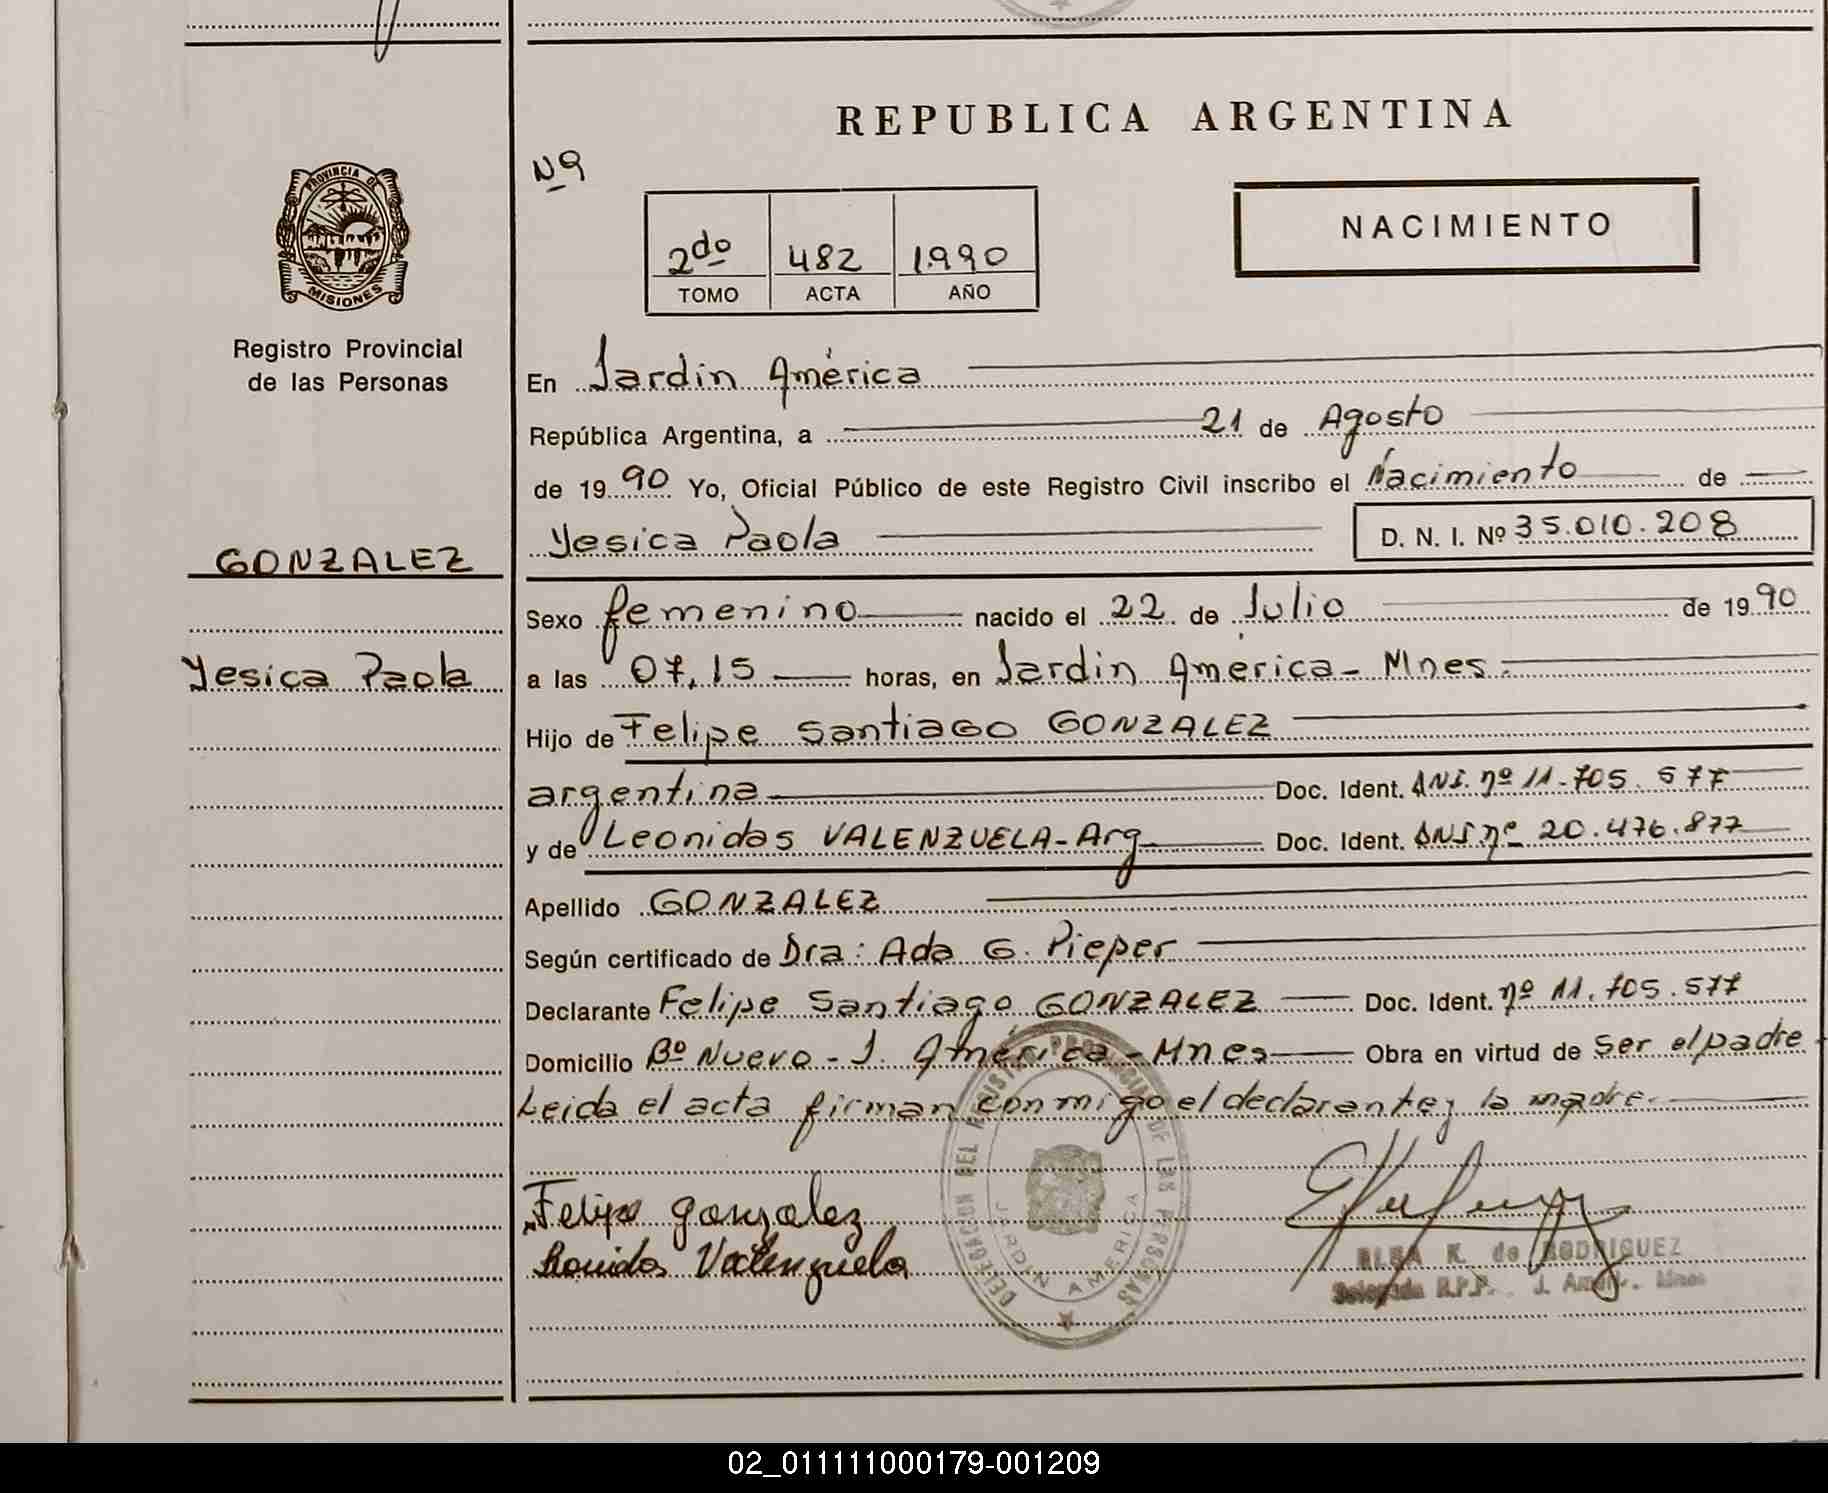 REPUBLICA ARGENTINA
Nº
PROVINCIA DE
MISIONES
Registro Provincial
de las Personas
2do 482 1.990
TOMO ACTA AÑO
NACIMIENTO
En Jardin América
República Argentina, a 21 de Agosto
de 1990 Yo, Oficial Público de este Registro Civil inscribo el Nacimiento de
Yesica Paola D. N. I. Nº 35.010.208
GONZALEZ
Sexo femenino nacido el 22 de Julio de 1990
Yesica Paola
a las 07,15 horas, en Jardin América - Mnes.
Hijo de Felipe Santiago GONZALEZ
argentina Doc. Ident. DNI. nº 11.705.577
y de Leonidas VALENZUELA - Arg Doc. Ident. DNI nº 20.476.877
Apellido GONZALEZ
Según certificado de Dra: Ada G. Pieper
Declarante Felipe Santiago GONZALEZ Doc. Ident. nº 11.705.577
Domicilio Bº Nuevo - J. América - Mnes Obra en virtud de Ser el padre
Leida el acta firman conmigo el declarante y la madre.
Felipe gonzalez
Valenzuela
DELEGACION DEL REGISTRO PROVINCIAL DE LAS PERSONAS
JARDIN AMERICA
K. de RODRIGUEZ
Delegada R.P.P. J. Amér. Mnes
02_011111000179-001209